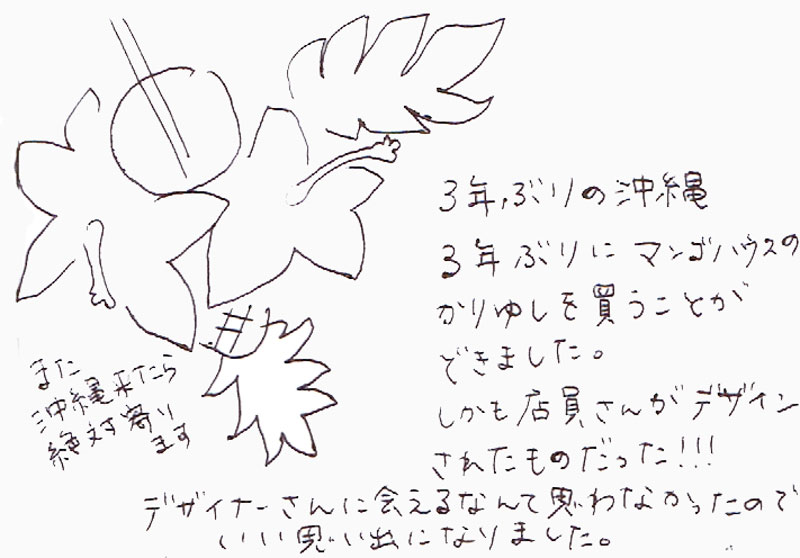 3年ぶりの沖縄
3年ぶりにマンゴハウスの
かりゆしを買うことが
できました。
しかも店員さんがデザイン
されたものだった!!!
デザイナーさんに会えるなんて思わなかったので
いい思い出になりました。
また
沖縄来たら
絶対寄り
ます